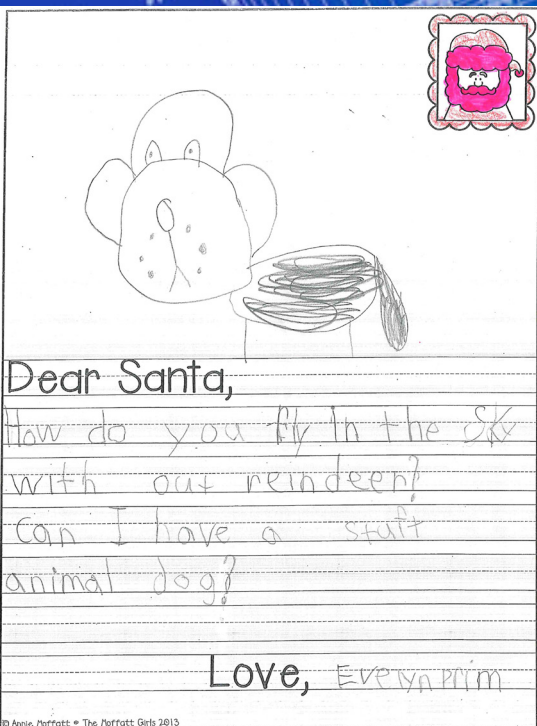 Dear Santa,
How do you fly in the sky
with out reindeer?
Can I have a stuft
animal dog?
Love, Evelyn Prim
© Annie Moffatt @ The Moffatt Girls 2013